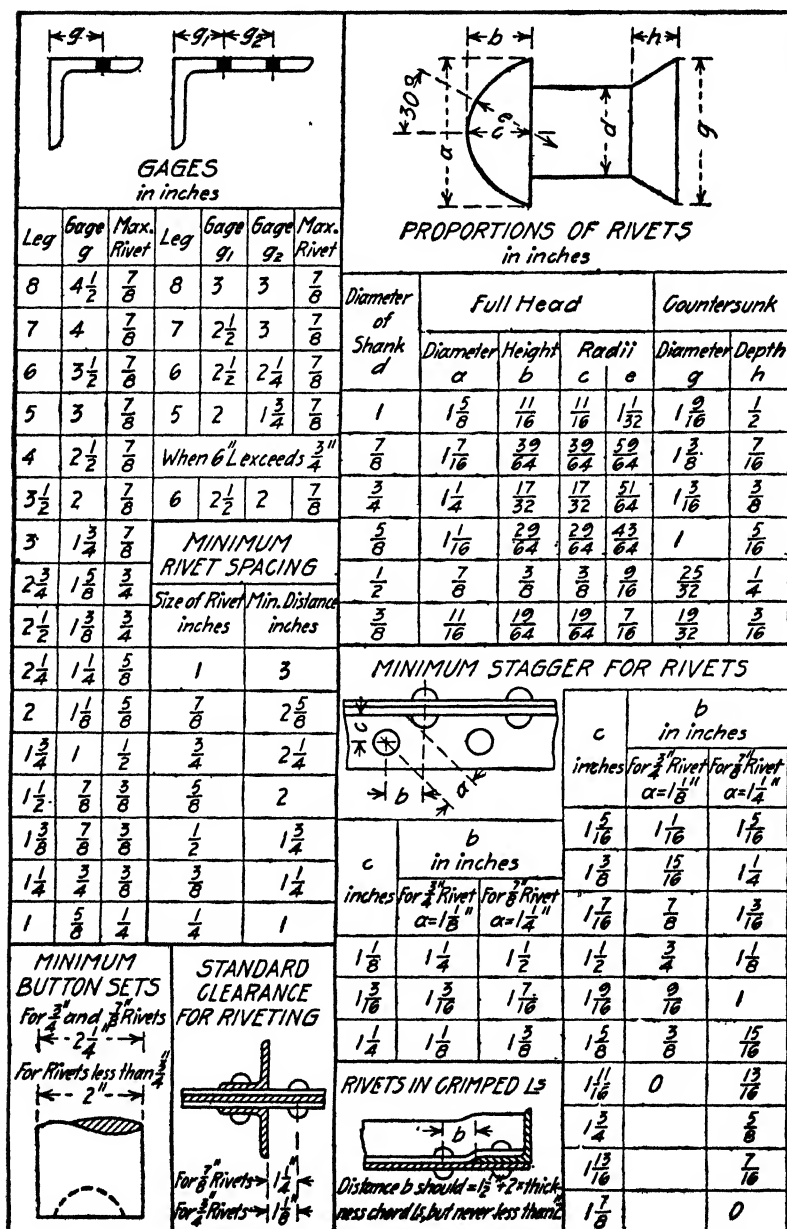 g g₁ g₂
GAGES
in inches
Leg Gage g Max. Rivet Leg Gage g₁ Gage g₂ Max. Rivet
8 4 1/2 7/8 8 3 3 7/8
7 4 7/8 7 2 1/2 3 7/8
6 3 1/2 7/8 6 2 1/2 2 1/4 7/8
5 3 7/8 5 2 1 3/4 7/8
4 2 1/2 7/8 When 6" L exceeds 3/4"
3 1/2 2 7/8 6 2 1/2 2 7/8
3 1 3/4 7/8
2 3/4 1 5/8 3/4
2 1/2 1 3/8 3/4
2 1/4 1 1/4 5/8
2 1 1/8 5/8
1 3/4 1 1/2
1 1/2 7/8 3/8
1 3/8 7/8 3/8
1 1/4 3/4 3/8
1 5/8 1/4
MINIMUM
RIVET SPACING
Size of Rivet inches Min. Distance inches
1 3
7/8 2 5/8
3/4 2 1/4
5/8 2
1/2 1 3/4
3/8 1 1/4
1/4 1
MINIMUM
BUTTON SETS
For 3/4" and 7/8" Rivets
2 1/4"
For Rivets less than 3/4"
2"
STANDARD
CLEARANCE
FOR RIVETING
For 7/8" Rivets 1 1/4"
For 3/4" Rivets 1 1/8"
b h
30° e a c d g
PROPORTIONS OF RIVETS
in inches
Diameter of Shank d Full Head Countersunk
Diameter a Height b Radii c e Diameter g Depth h
1 1 5/8 11/16 11/16 1 1/32 1 9/16 1/2
7/8 1 7/16 39/64 39/64 59/64 1 3/8 7/16
3/4 1 1/4 17/32 17/32 51/64 1 3/16 3/8
5/8 1 1/16 29/64 29/64 43/64 1 5/16
1/2 7/8 3/8 3/8 9/16 25/32 1/4
3/8 11/16 19/64 19/64 7/16 19/32 3/16
MINIMUM STAGGER FOR RIVETS
c b a
c inches b in inches
For 3/4" Rivet a=1 1/8" For 7/8" Rivet a=1 1/4"
1 1/8 1 1/4 1 1/2
1 3/16 1 3/16 1 7/16
1 1/4 1 1/8 1 3/8
c inches b in inches
For 3/4" Rivet a=1 1/8" For 7/8" Rivet a=1 1/4"
1 5/16 1 1/16 1 5/16
1 3/8 15/16 1 1/4
1 7/16 7/8 1 3/16
1 1/2 3/4 1 1/8
1 9/16 9/16 1
1 5/8 3/8 15/16
1 11/16 0 13/16
1 3/4 5/8
1 13/16 7/16
1 7/8 0
RIVETS IN CRIMPED Ls
b
Distance b should = 1 1/2" + 2 × thick-
ness chord Ls, but never less than 2"